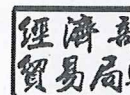 經濟部
貿易局